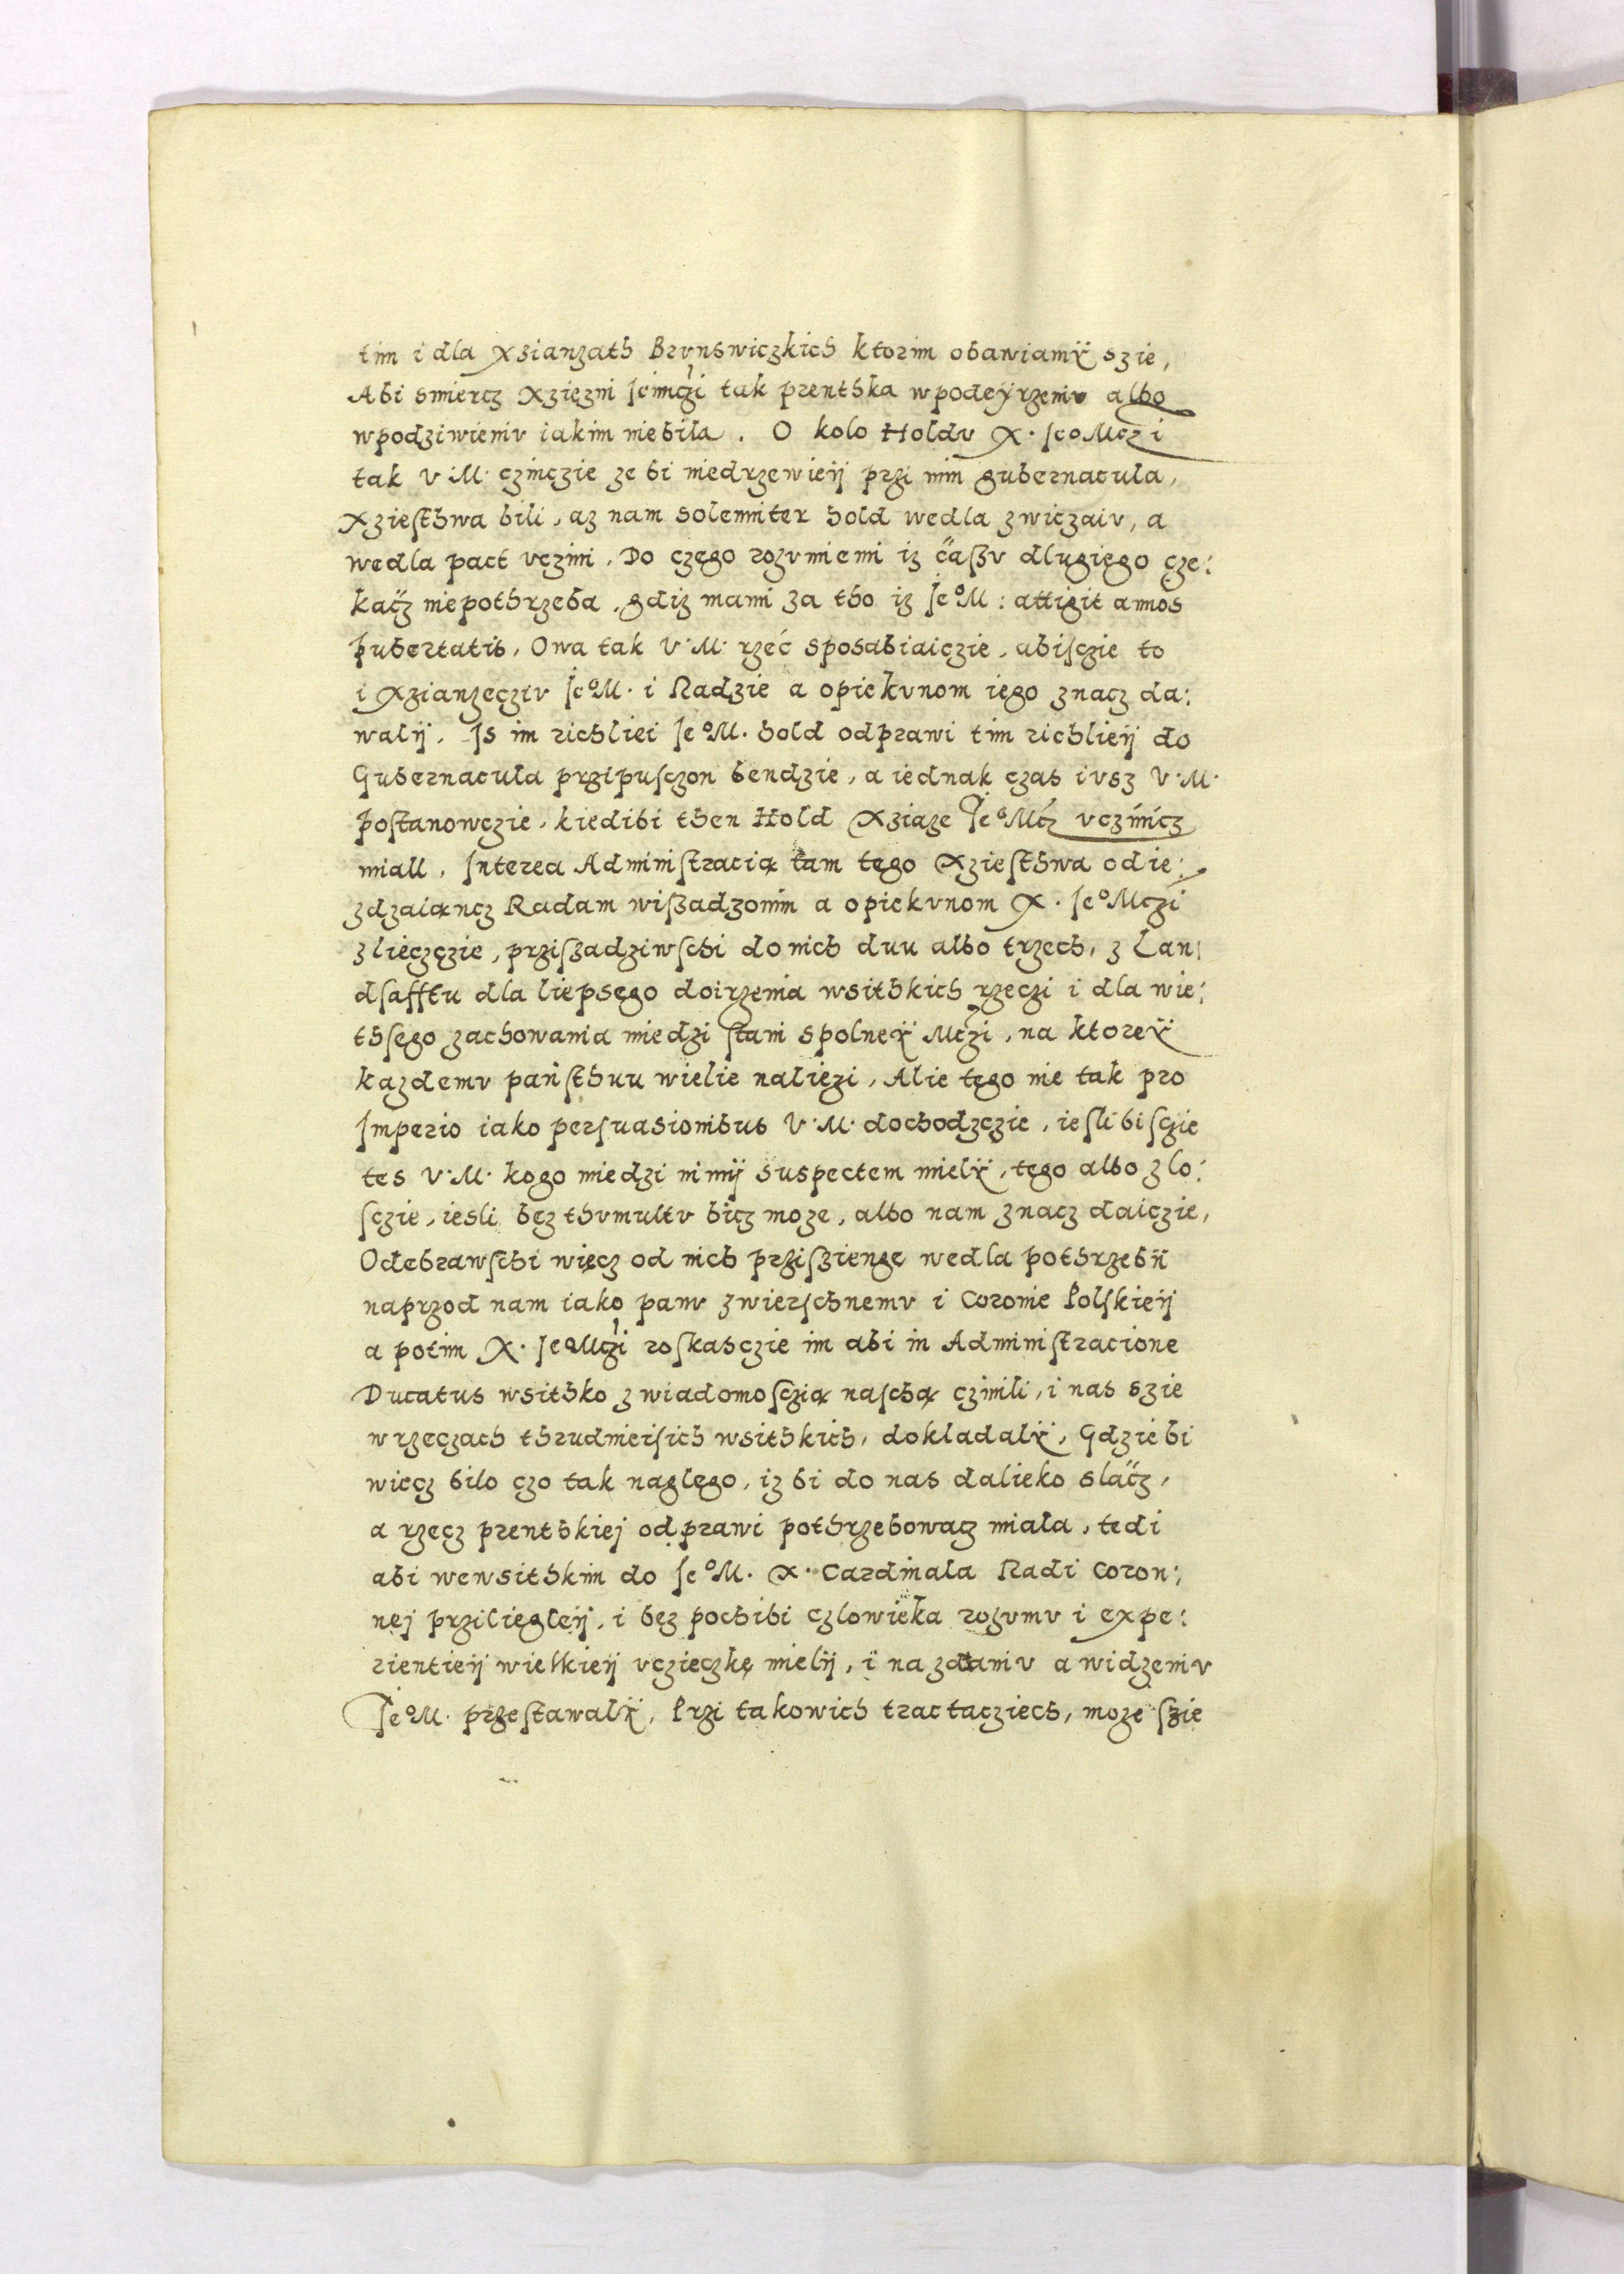 tim i dla Xzianzath Brunswiczkich ktorim obawiamÿ szie,
Abi smiercz Xzięzni Jeimczi tak prenthka w podeÿrzeniu albo
w podziwieniu iakim niebila. O kolo Holdu X. JeoMczi
tak V. M. czinczie ze bi niedrzewieij przi nim gubernacula,
Xziesthwa bili, az nam solenniter hold wedla zwiczaiu, a
wedla pact uczini. Do czego rozumiemi iz cżaßu dlugiego cze:
kacz niepothrzeba, gdiz mami za tho iz Je°M: attigit annos
pubertatis, Owa tak V. M. rzeć sposabiaiczie, abisczie to
i Xzianzecziu Je°M. i Radzie a opiekunom iego znacz da:
walij. Js im richliei Je°M. hold odprawi tim richlieij do
Gubernacula przipusczon bendzie, a iednak czas iusz V. M.
postanowczie, kiedibi then Hold Xziaze Je°Mcz uczinicz
miall. Interea Administracią tam tego Xziesthwa odie:
zdzaiąncz Radam wißadzonim a opiekunom X. Je°Mczi
zlieczczie, przißadziwschi do nich duu albo trzech, z Lan:
dsafftu dla liepsego doirzenia wsithkich rzeczi i dla wie:
thsego zachowania miedzi stani spolneÿ Mczi, na ktoreÿ
kazdemu państhuu wielie naliezi, Alie tego nie tak pro
Imperio iako persuasionibus V. M. dochodzczie, iesli bisczie
tes V. M. kogo miedzi nimij suspectem mielÿ, tego albo zlo:
sczie, iesli bez thumultu bicz moze, albo nam znacz daiczie,
Odebrawschi więcz od nich przißienge wedla pothrzebÿ
naprzod nam iako panu zwierschnemu i Coronie Polskieij
a potim X. JeoMczi roskasczie im abi in Administracione
Ducatus wsithko z wiadomosczią naschą czinili, i nas szie
w rzeczach thrudnieisich wsithkich, dokladalÿ, Gdzie bi
więcz bilo czo tak naglego, iz bi do nas dalieko slacz,
a rzecz prenthkiej odprawi pothrzebowacz miala, tedi
abi wewsithkim do Je°M. X. Cardinala Radi Coron:
nej prziliegleij, i bez pochibi czlowieka rozumu i expe:
rientieij wielkieij ucieczkę mielij, i na zdaniu a widzeniu
Je°M. przestawalÿ, Przi takowich tractacziech, moze szie